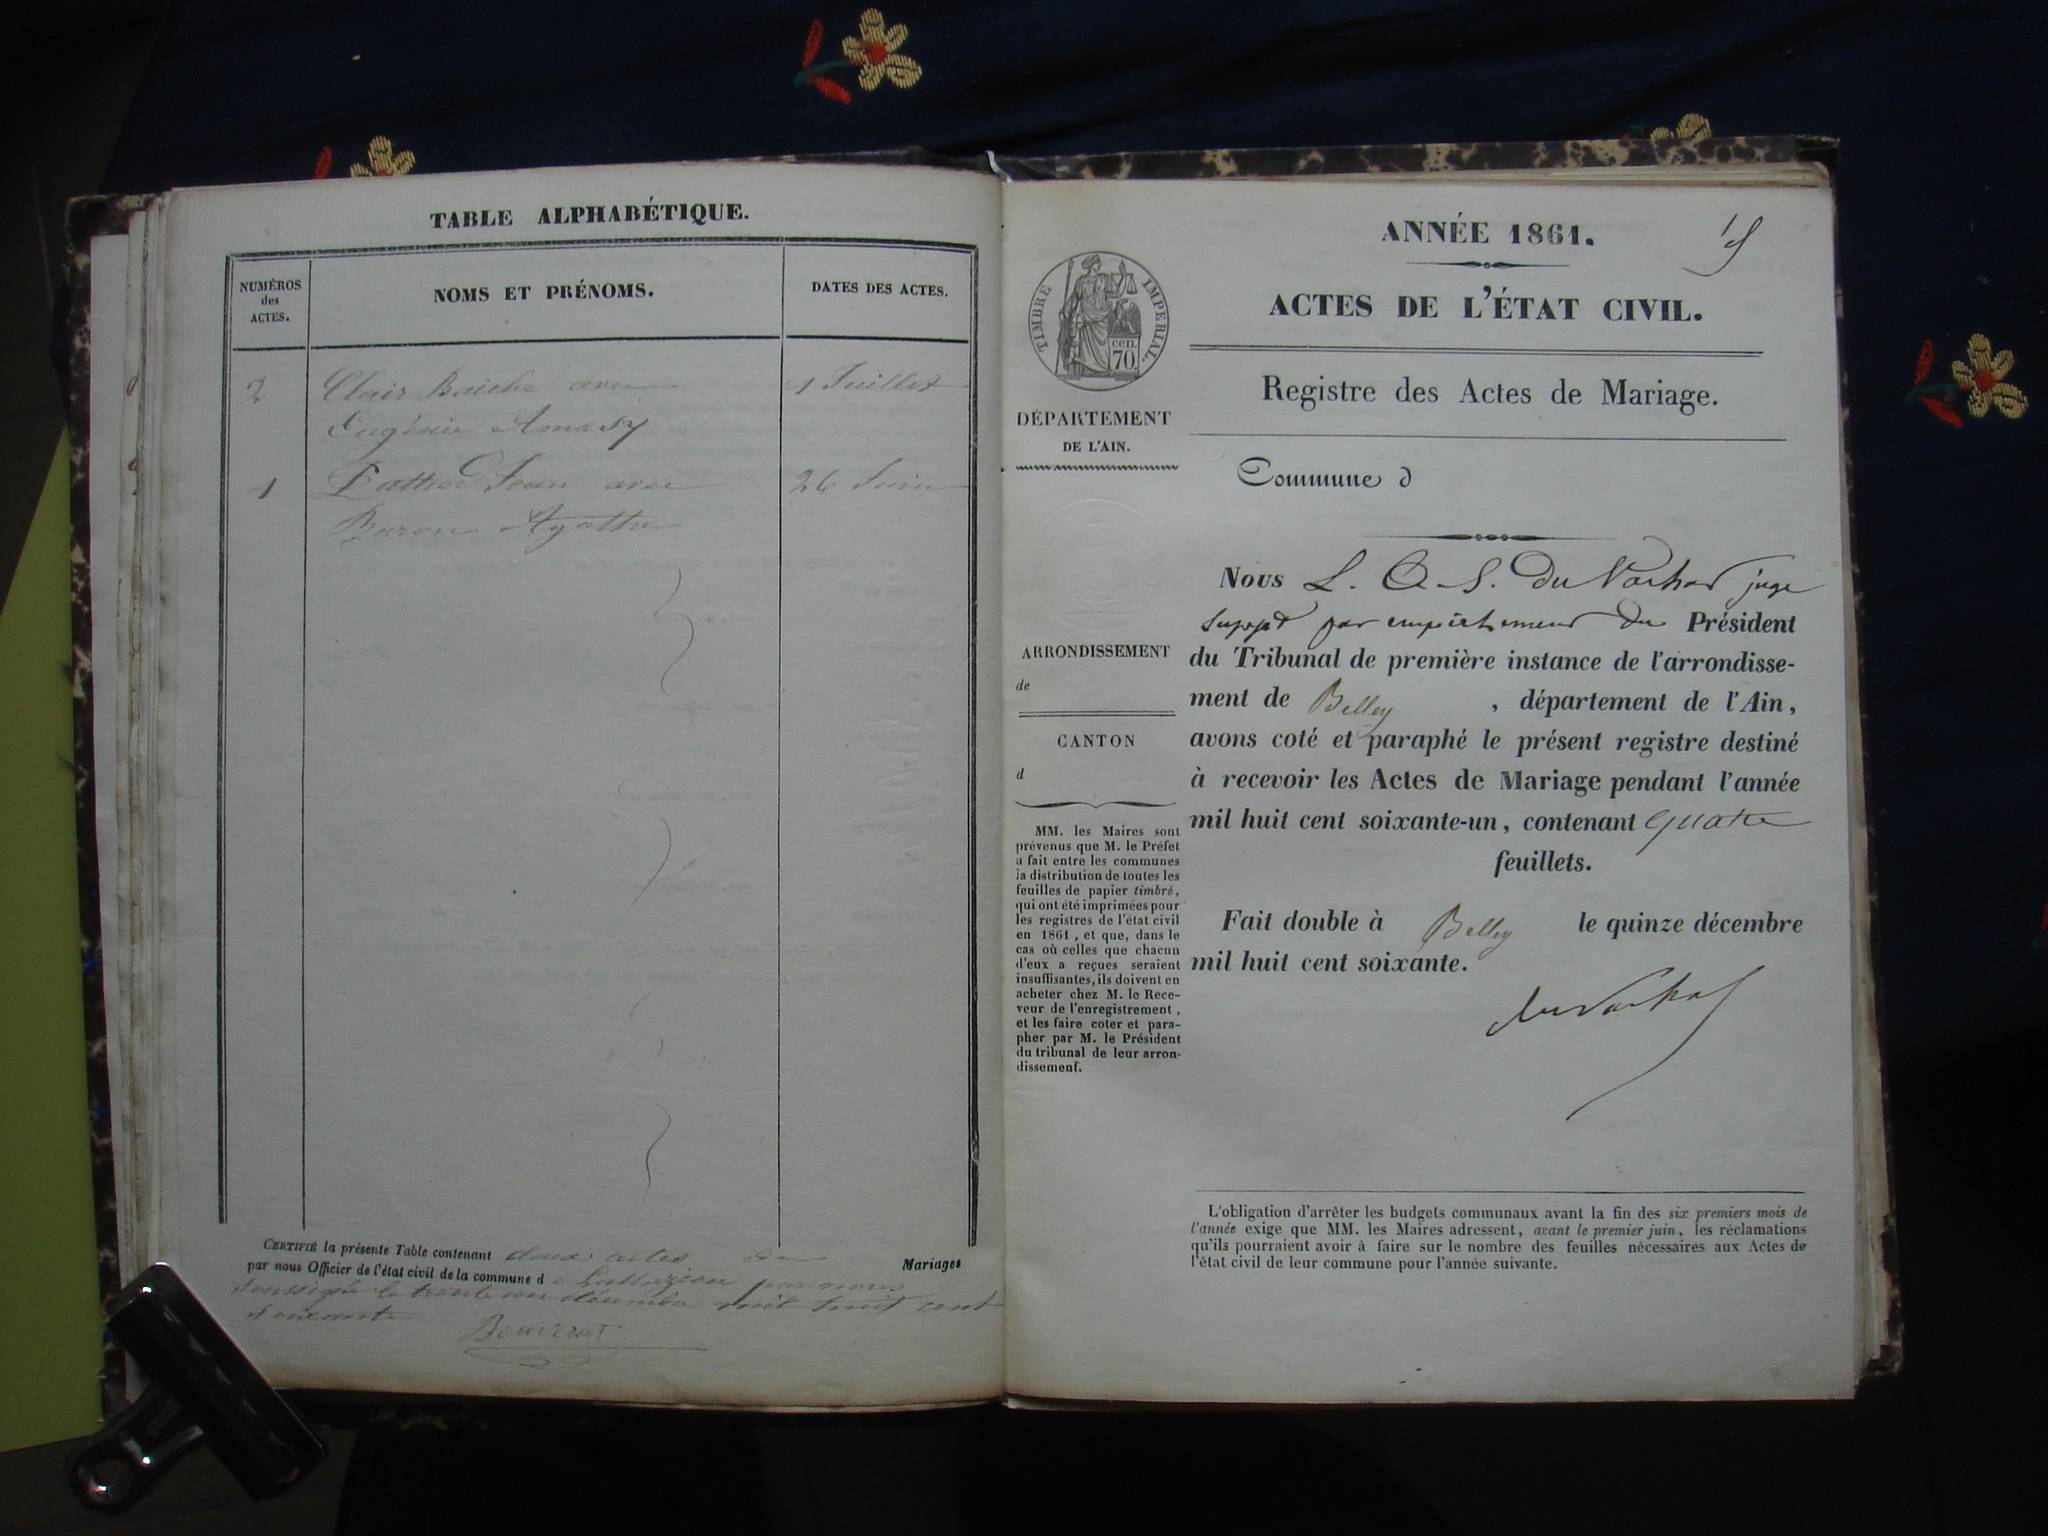 TABLE ALPHABÉTIQUE.
NUMÉROS
des
ACTES.
NOMS ET PRÉNOMS.
DATES DES ACTES.
2 Clair Baiche avec 1 Juillet
Eugénie
1 Jean avec 26 Juin
Baron Agathe
CERTIFIÉ la présente Table contenant deux actes de Mariages
par nous Officier de l'état civil de la commune d par nous
soussigné le trente un décembre mil huit cent
soixante
Bouverat
ANNÉE 1861.
ACTES DE L'ÉTAT CIVIL.
Registre des Actes de Mariage.
TIMBRE IMPÉRIAL.
cen.
70
DÉPARTEMENT
DE L'AIN.
ARRONDISSEMENT
de
CANTON
d
MM. les Maires sont
prévenus que M. le Préfet
a fait entre les communes
la distribution de toutes les
feuilles de papier timbré,
qui ont été imprimées pour
les registres de l'état civil
en 1861, et que, dans le
cas où celles que chacun
d'eux a reçues seraient
insuffisantes, ils doivent en
acheter chez M. le Rece-
veur de l'enregistrement,
et les faire coter et para-
pher par M. le Président
du tribunal de leur arron-
dissement.
Commune d
Nous L. Du juge
suppt par empêchement du Président
du Tribunal de première instance de l'arrondisse-
ment de Belley , département de l'Ain,
avons coté et paraphé le présent registre destiné
à recevoir les Actes de Mariage pendant l'année
mil huit cent soixante-un, contenant quatre
feuillets.
Fait double à Belley le quinze décembre
mil huit cent soixante.
L'obligation d'arrêter les budgets communaux avant la fin des six premiers mois de
l'année exige que MM. les Maires adressent, avant le premier juin, les réclamations
qu'ils pourraient avoir à faire sur le nombre des feuilles nécessaires aux Actes de
l'état civil de leur commune pour l'année suivante.